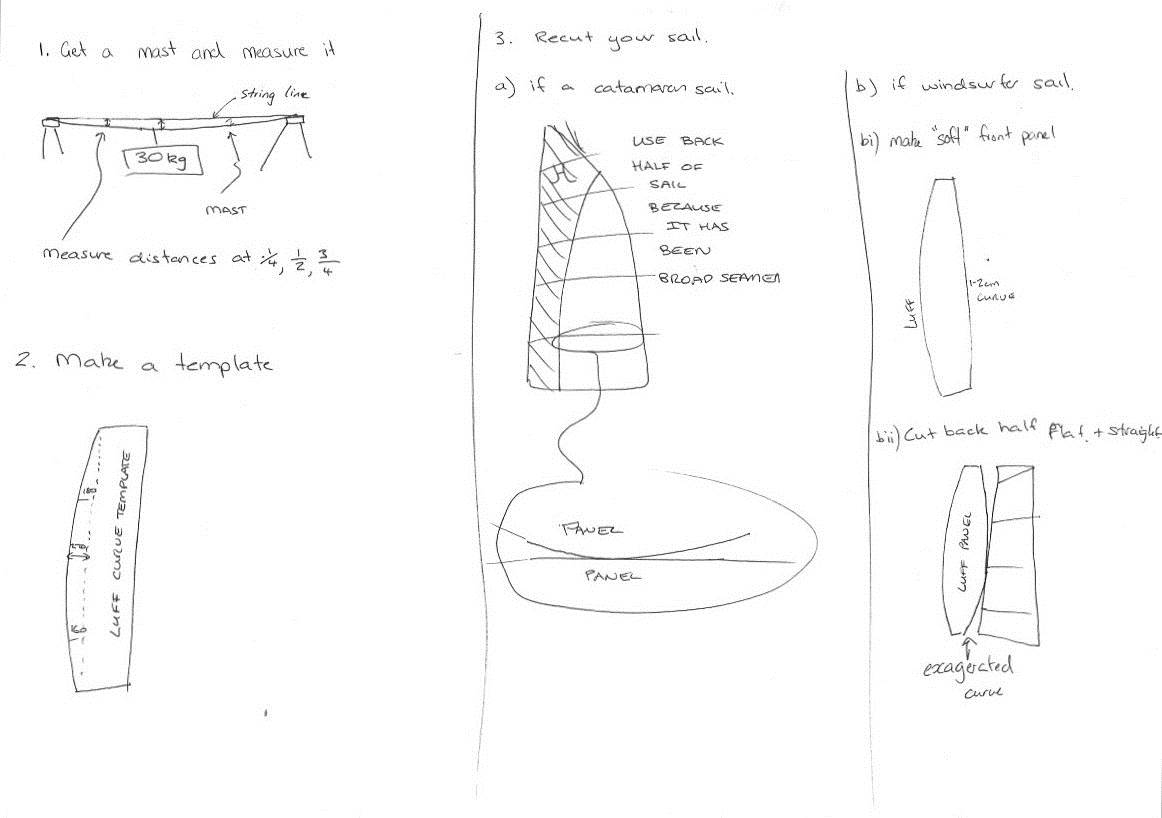 1. Get a mast and measure it
string line
30 kg
MAST
measure distances at 1/4, 1/2, 3/4
2. Make a template
LUFF CURVE TEMPLATE
3. Recut your sail.
a) if a catamaran sail.
USE BACK
HALF OF
SAIL
BECAUSE
IT HAS
BEEN
BROAD SEAMED
PANEL
PANEL
b) if windsurfer sail.
bi) make "soft" front panel
LUFF
1-2cm
CURVE
bii) Cut back half flat + straight
LUFF PANEL
exagerated
curve